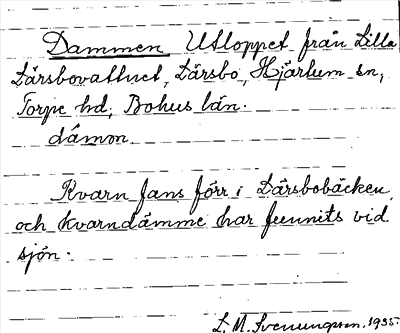 Dammen Utloppet från Lilla
Lärsbovattnet, Lärsbo, Hjärtum sn,
Torpe hd, Bohus län.
dámon
Kvarn fans förr i Lärsbobäcken
och kvarndämme har funnits vid
sjön.
L. M. Svenungsson. 1935.